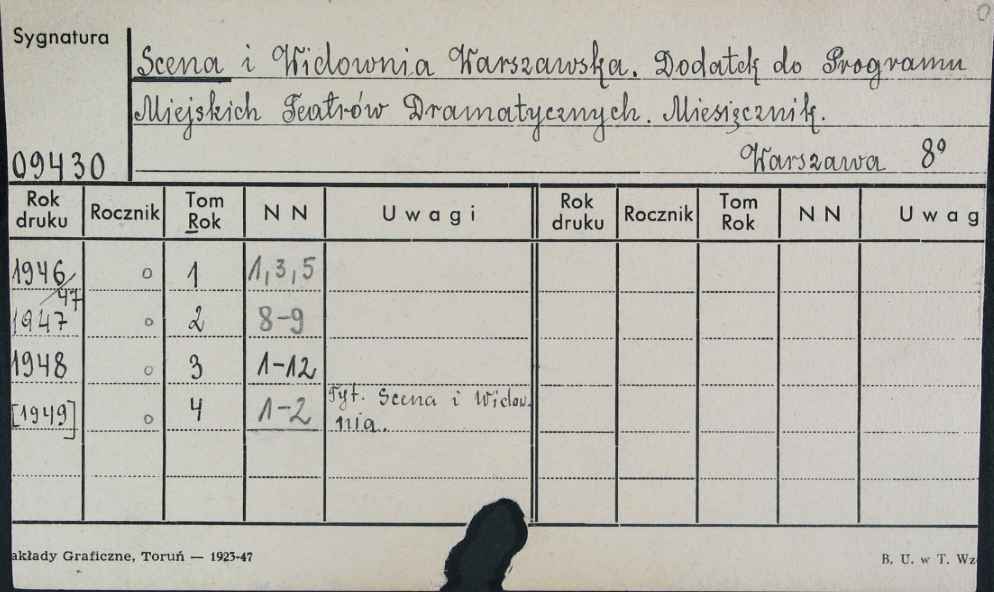 Sygnatura
Scena i Widownia Warszawska. Dodatek do Programu
Miejskich Teatrów Dramatycznych. Miesięcznik.
09430 Warszawa 8°
Rok druku Rocznik Tom Rok N N Uwagi Rok druku Rocznik Tom Rok N N Uwag
1946/47 o 1 1, 3, 5
1947 o 2 8-9
1948 o 3 1-12
[1949] o 4 1-2 Tyt. Scena i Widow-
nia.
akłady Graficzne, Toruń — 1923-47 B. U. w T. Wz